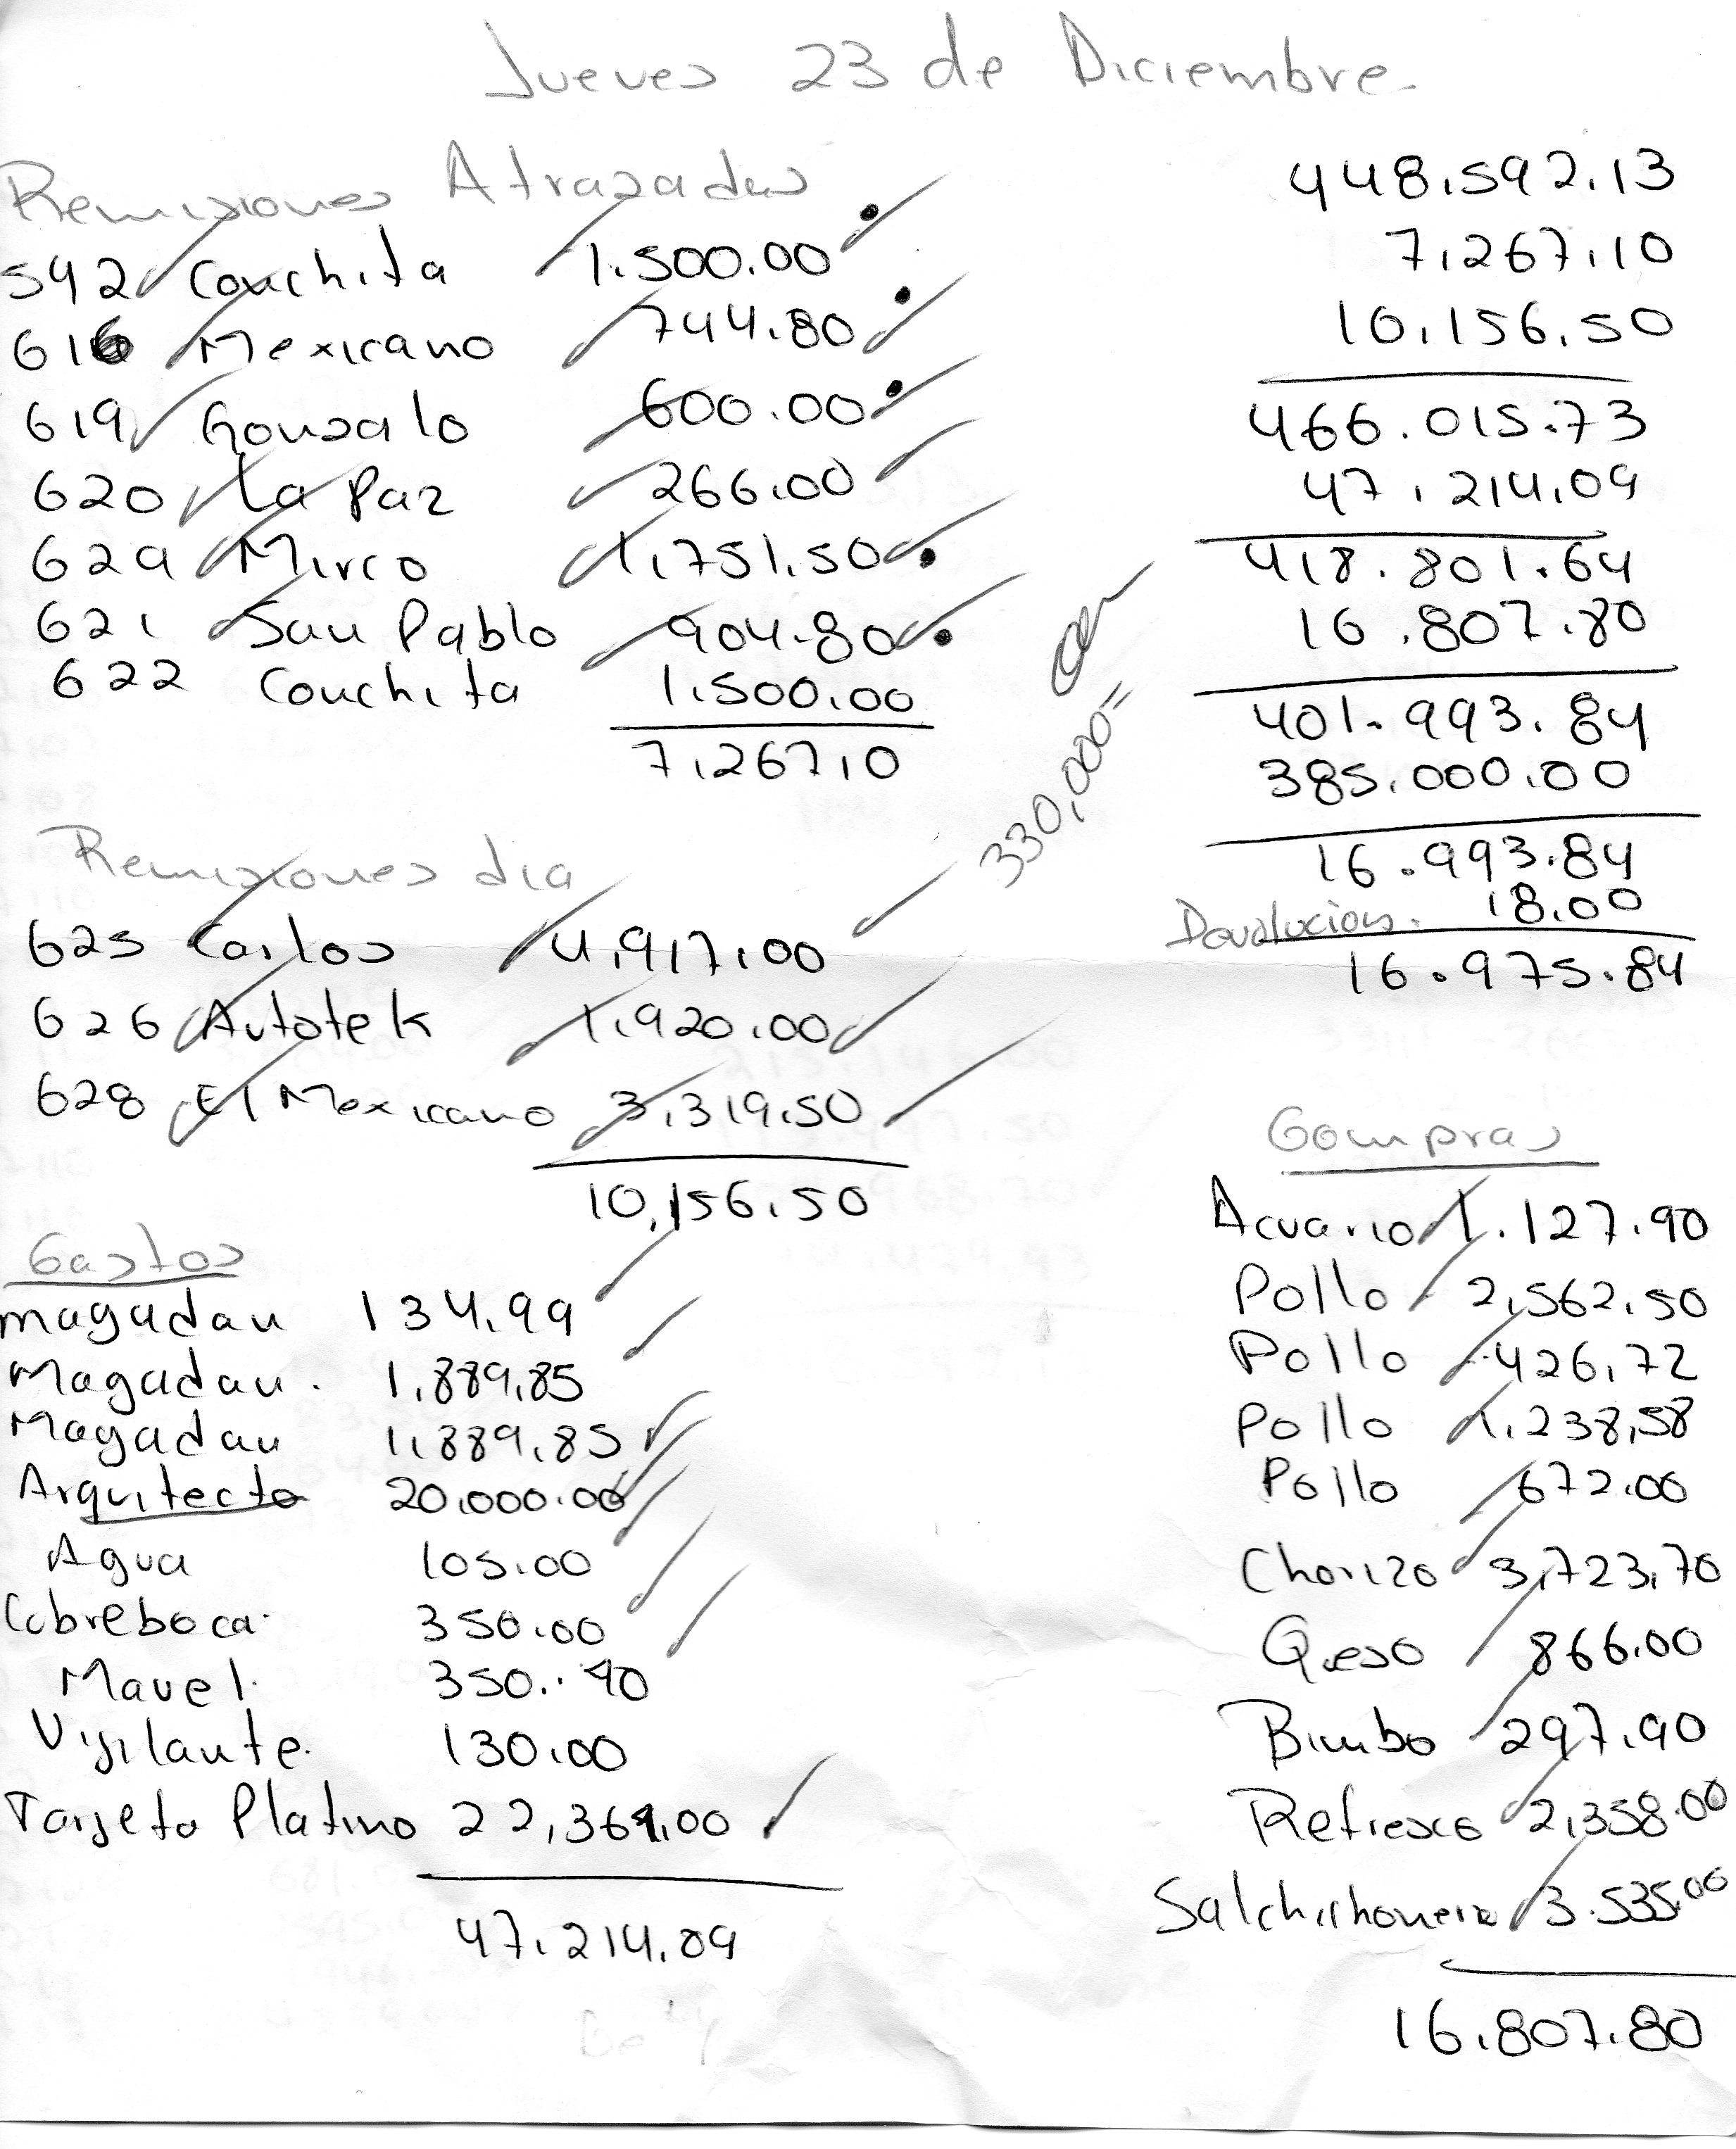 Jueves 23 de Diciembre
Remisiones Atrazadas
542 Conchita 1,500.00
616 Mexicano 744.80
619 Gonzalo 600.00
620 La Paz 266.00
629 Mirco 1,751.50
621 San Pablo 904.80
622 Conchita 1,500.00
7,267.10
330,000=
Remisiones dia
625 Carlos 4,917.00
626 Autotek 1,920.00
628 El Mexicano 3,319.50
10,156.50
Gastos
magadan 134.99
Magadan. 1,889.85
Magadan 1,889.85
Arquitecto 20,000.00
Agua 105.00
Cubreboca. 350.00
Mavel. 350..40
Vigilante. 130.00
Tarjeta Platino 22,364.00
47,214.09
448,592.13
7,267.10
10,156.50
466.015.73
47,214.09
418.801.64
16.807.80
401.993.84
385,000.00
16.993.84
Devolucion. 18.00
16.975.84
Compras
Acuario 1.127.90
Pollo 2,562.50
Pollo 426.72
Pollo 1.238.58
Pollo 672.00
Chorizo 3,723.70
Queso 866.00
Bimbo 297.90
Refresco 2,358.00
Salchichoneria 3.535.00
16,807.80